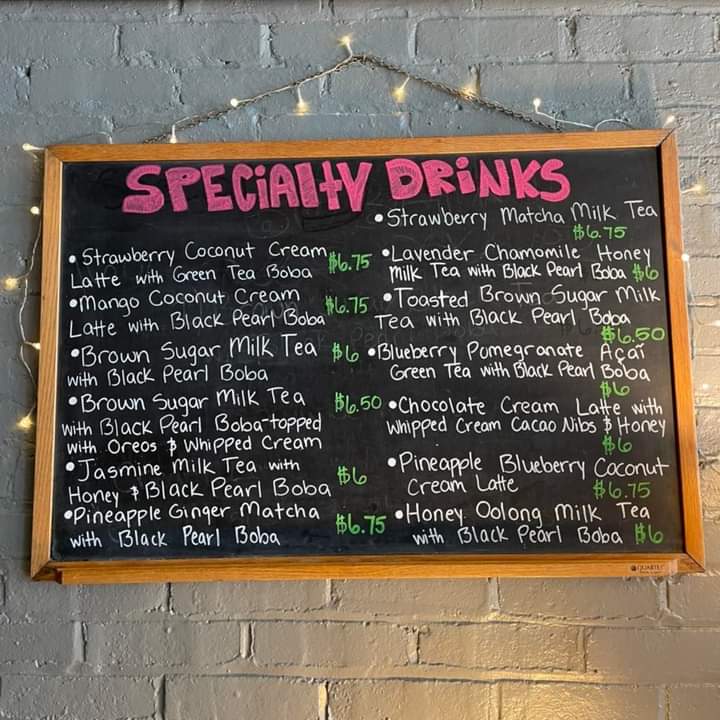 SPECIALTY DRINKS
• Strawberry Coconut Cream
Latte with Green Tea Boba $6.75
• Mango Coconut Cream
Latte with Black Pearl Boba $6.75
• Brown Sugar Milk Tea $6
with Black Pearl Boba
• Brown Sugar Milk Tea $6.50
with Black Pearl Boba-topped
with Oreos & Whipped Cream
• Jasmine Milk Tea with
Honey & Black Pearl Boba $6
• Pineapple Ginger Matcha $6.75
with Black Pearl Boba
• Strawberry Matcha Milk Tea
$6.75
• Lavender Chamomile Honey
Milk Tea with Black Pearl Boba $6
• Toasted Brown Sugar Milk
Tea with Black Pearl Boba
$6.50
• Blueberry Pomegranate Açaí
Green Tea with Black Pearl Boba
$6
• Chocolate Cream Latte with
Whipped Cream Cacao Nibs & Honey
$6
• Pineapple Blueberry Coconut
Cream Latte $6.75
• Honey Oolong Milk Tea
with Black Pearl Boba $6
QUARTET